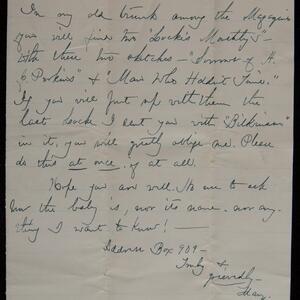 In my old trunk among the Magazines
you will find two "Locke's Monthly's"—
with these two sketches—"Sorrows of H.
& "Man Who Hadn't Time."
If you will just up with them the
last Locke I sent you with
in it, you will greatly oblige me. Please
do this at once, if at all.
Hope you are well. No use to ask
how the baby is, nor its name, nor any
thing I want to know! —
Address Box 909—
Truly &
Mary.